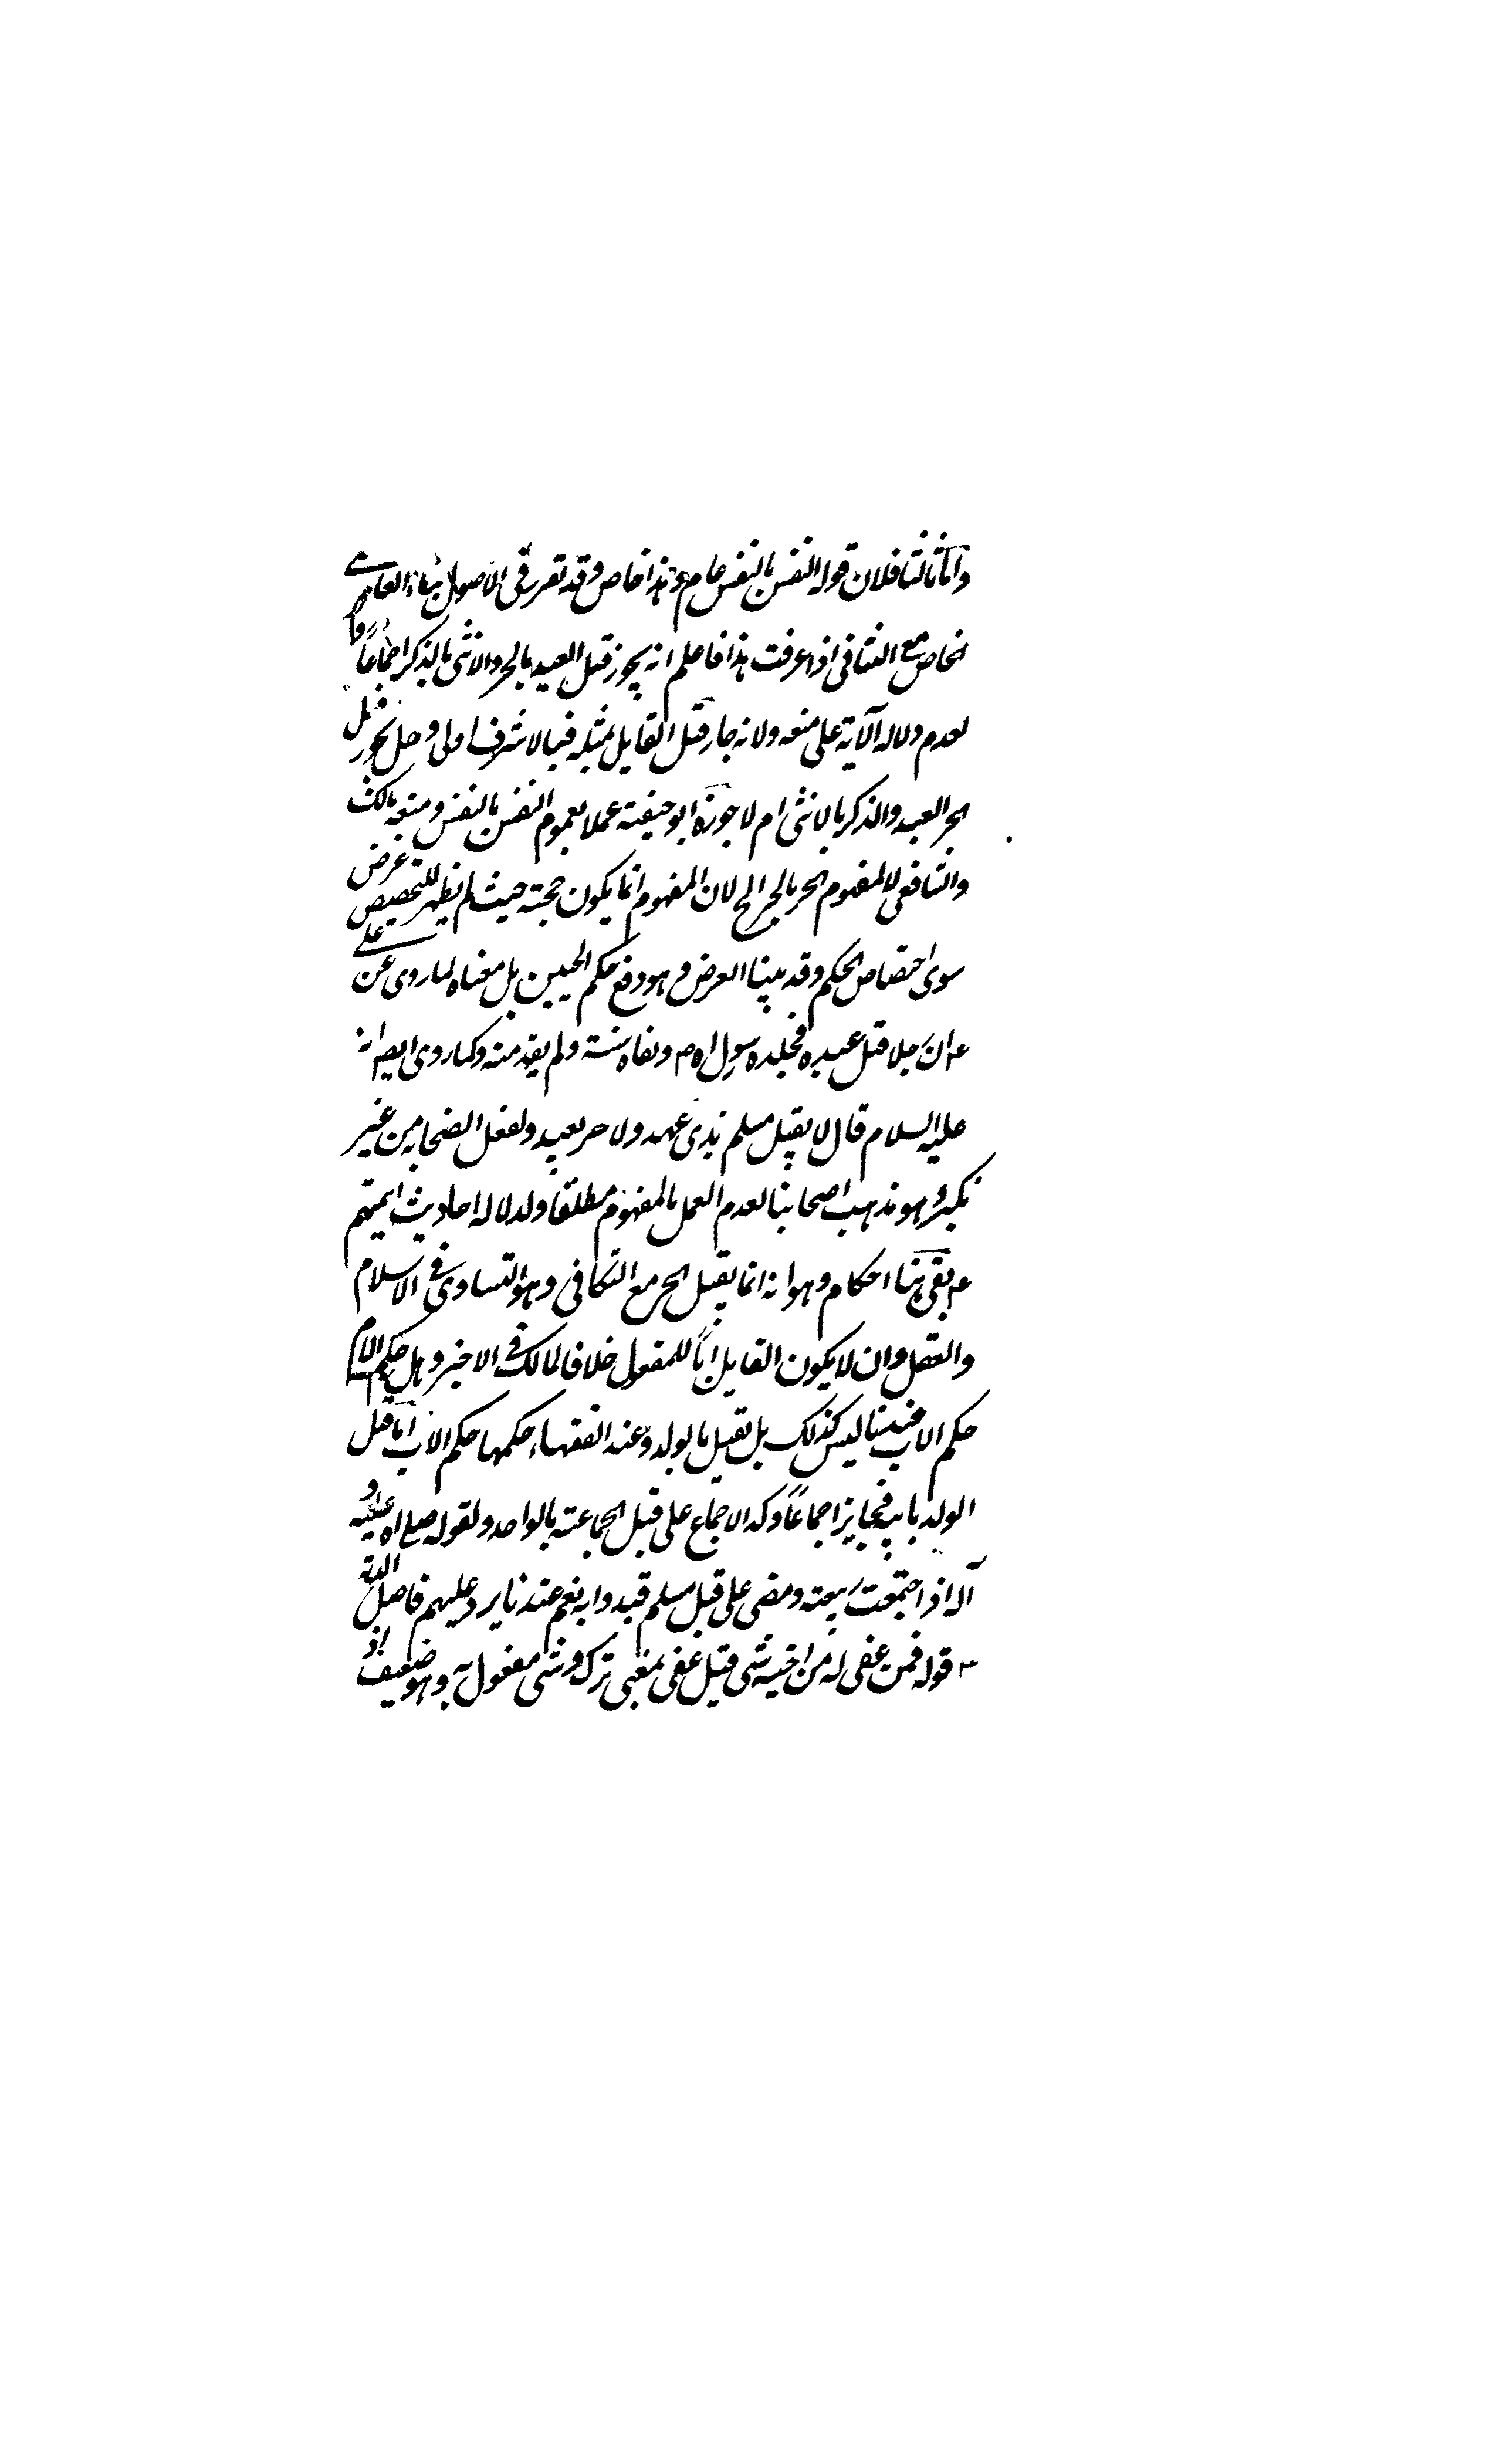 واما ثالثا فلان قوله النفس بالنفس عام وهذا خاص وقد تقرر فى الاصول بناء العام على
الخاص مع التنافى اذا عرفت هذا فاعلم انه يجوز قتل العبد بالحر والانثى بالذكر اجماعاً واما
لعدم دلاله الآية على منعه ولانه جاز قتل القاتل بمثله فبالاشرف اولى وهل يجوز قتل
الحر بالعبد والذكر بالانثى ام لا جوزه ابو حنيفة عملا بعموم النفس بالنفس ومنعه مالك
والشافعى لا لمفهوم الحر بالحر الخ لان المفهوم انما يكون حجة حيث لم يظهر للتخصيص غرض
سوى اختصاص الحكم وقد بينا الغرض وهو دفع حكم الحيين بل معناه لما روى عن على
ع ان رجلا قتل عبده فجلده رسول الله ص ونفاه سنة ولم يقد منه وكما روى ايضا انه
عليه السلام قال لا يقتل مسلم بذى عهد ولا حر بعبد ولفعل الصحابه من غير
نكير وهو مذهب اصحابنا لعدم العمل بالمفهوم مطلقا ولدلاله احاديث ايمتهم
ع بقى هنا احكام وهو انه انما يقتل الحر مع التكافى وهو التساوى فى الاسلام
والعقل وان لا يكون القاتل اباً للمقتول خلافا لمالك فى الاخير وهل حكم الام
حكم الاب فعندنا ليس كذلك بل تقتل بالولد وعند الفقهاء حكمها حكم الاب اما قتل
الولد بابيه فجايز اجماعاً وكد الاجماع على قتل الجماعة بالواحد ولقوله صلى الله عليه و
آله اذا اجتمعت ربيعة ومضر على قتل مسلم قيدوا به نعم عندنا يرد عليهم فاضل الدية
٣ قوله فمن عفى له من اخيه شى قيل عفى بمعنى ترك وشى مفعول به وهو ضعيف اذ